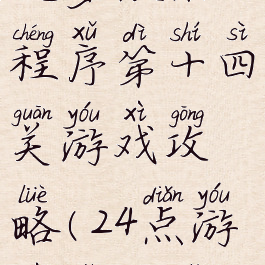 chéng xǔ dì shí sì
程序第十四
guān yóu xì gōng
关游戏攻
lüè diǎn yóu
略(24点游